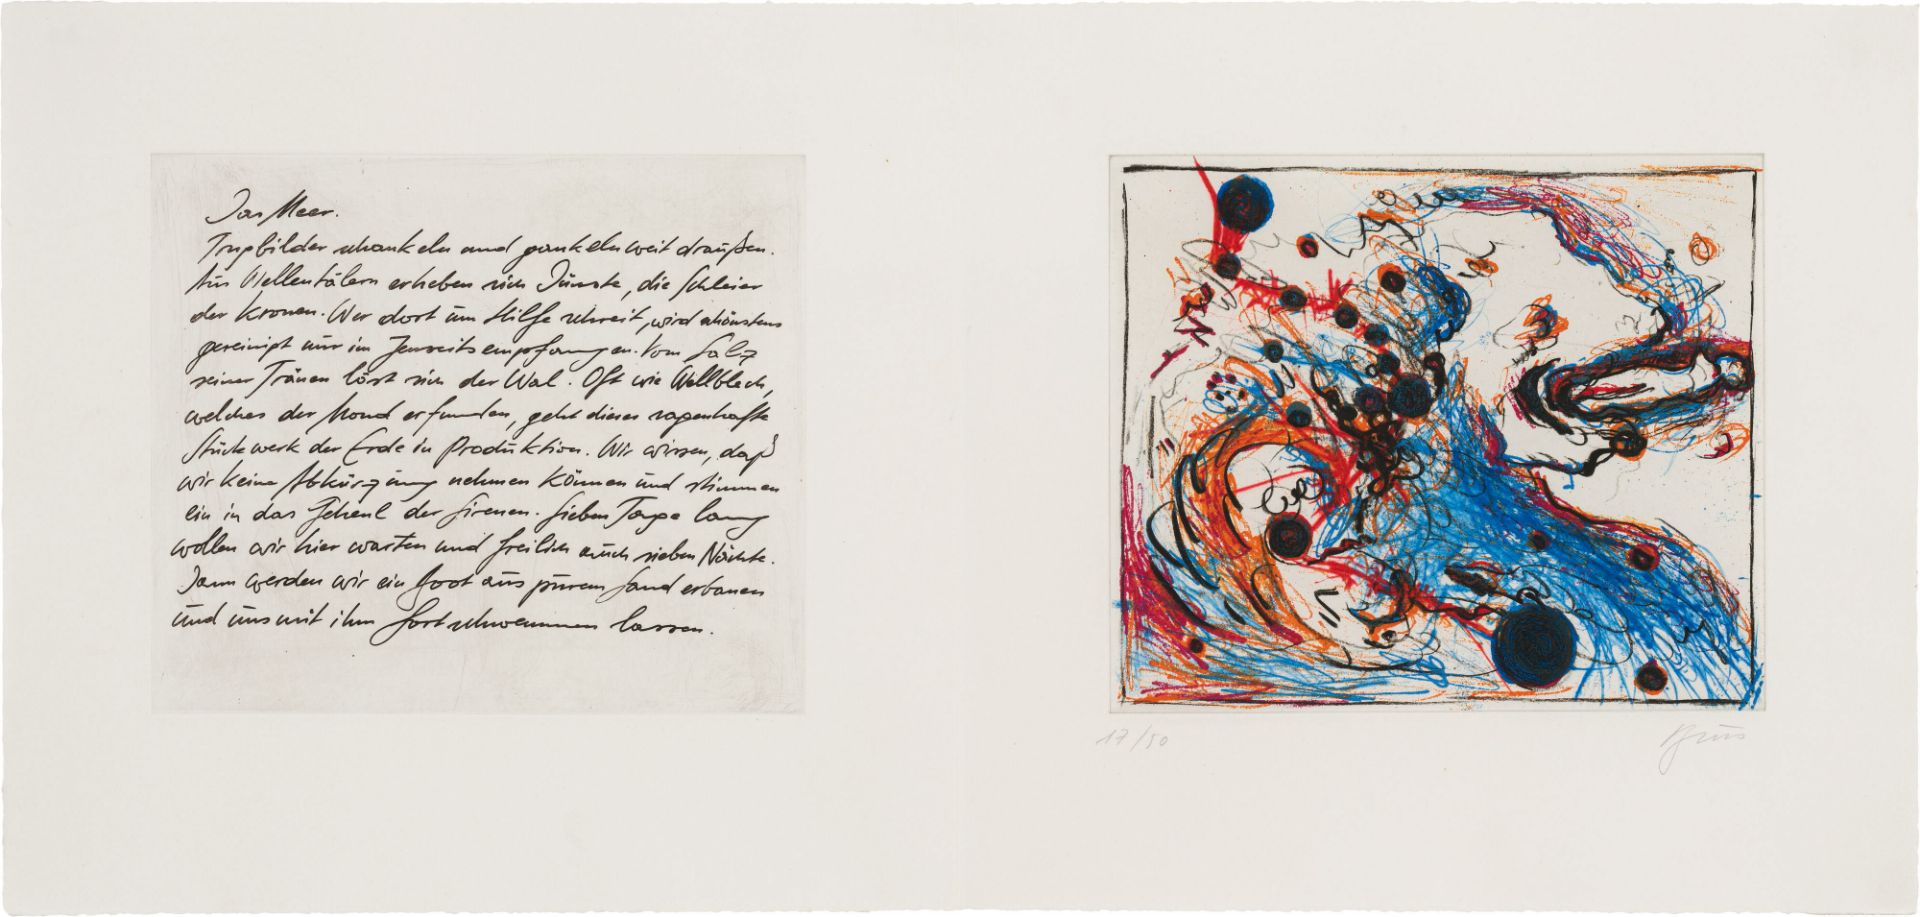 Das Meer.
Trugbilder schaukeln und gaukeln weit draußen.
Aus Wellentälern erheben sich Dünste, die Schleier
der Kronen. Wer dort um Hilfe schreit, wird schönstens
gereinigt nur im Jenseits empfangen. Vom Salz
seiner Tränen löst sich der Wal. Oft wie Wellblech,
welches der Mond erfunden, geht dieses sagenhafte
Stückwerk der Erde in Produktion. Wir wissen, daß
wir keine Abkürzung nehmen können und stimmen
ein in das Geheul der Sirenen. Sieben Tage lang
wollen wir hier warten und freilich auch sieben Nächte.
Dann werden wir ein Boot aus purem Sand erbauen
und uns mit ihm fortschwemmen lassen.
17/50
Brus